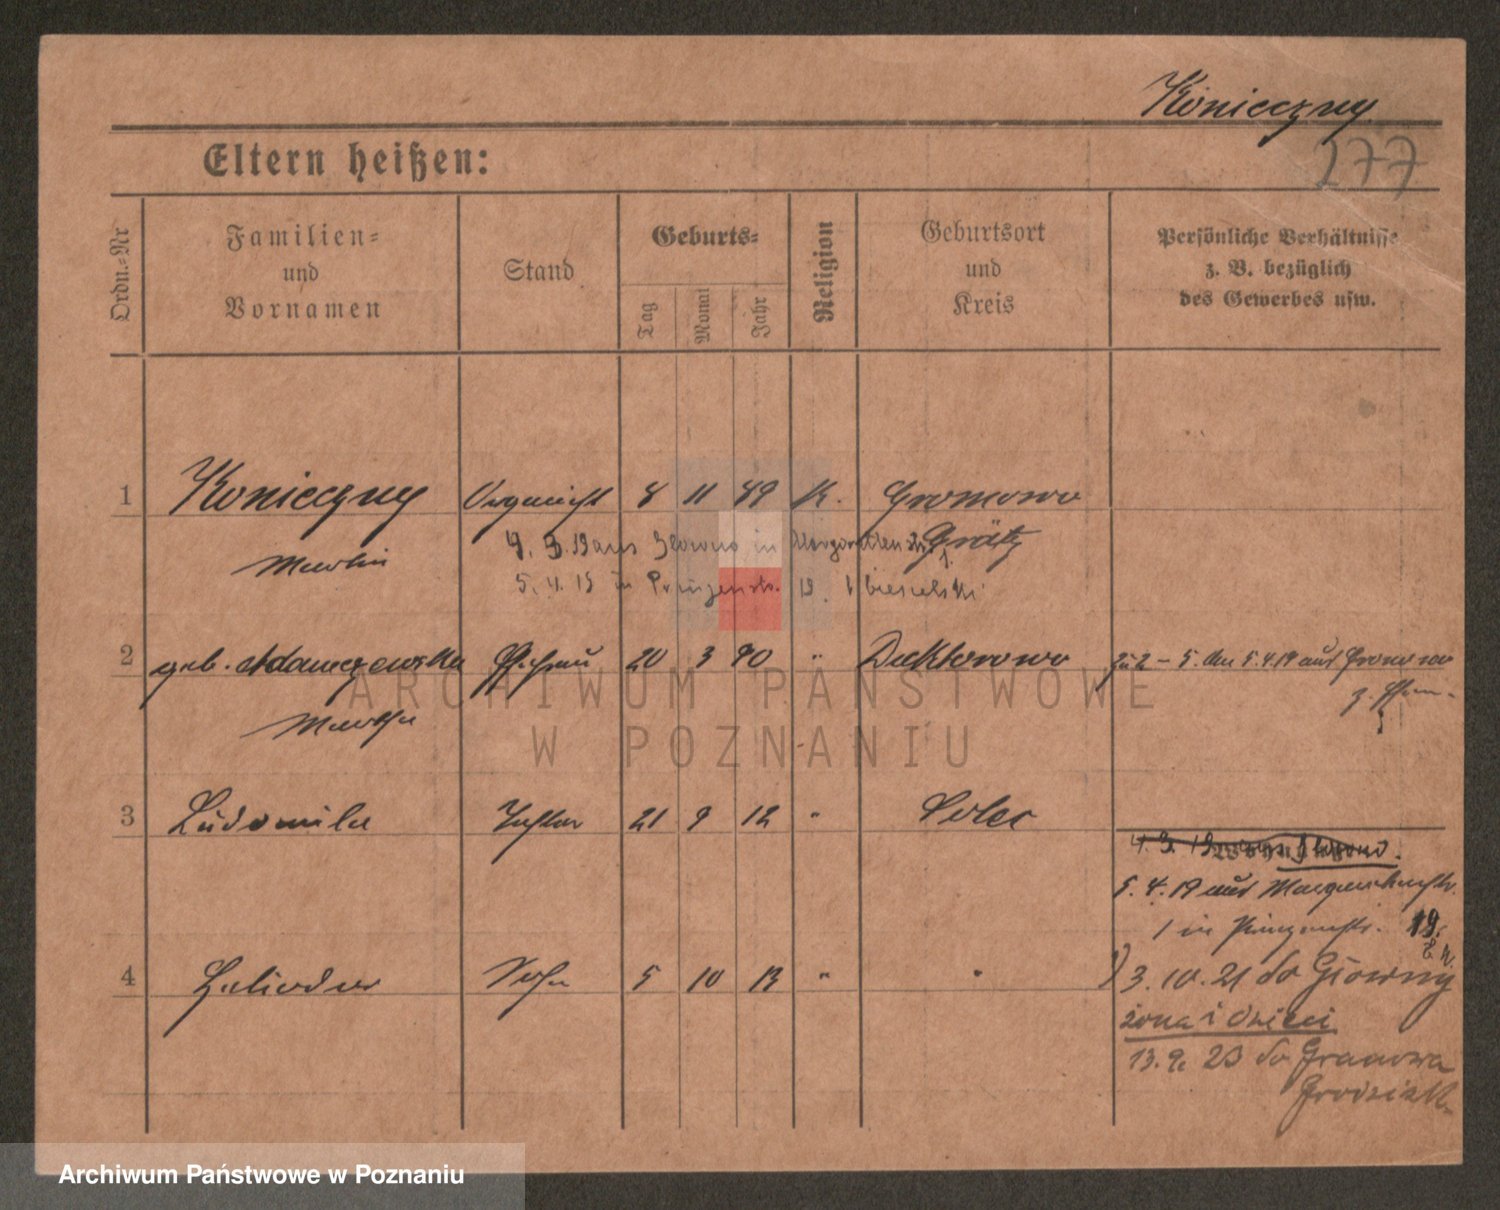 Konieczny
277
Eltern heißen:
Ordn.-Nr
Familien-
und
Vornamen
Stand
Geburts-
Tag
Monat
Jahr
Religion
Geburtsort
und
Kreis
Persönliche Verhältnisse
z. B. bezüglich
des Gewerbes usw.
1 Konieczny 8 11 89 K. Gronowo
Martin Grätz
4. 3. 19 aus in
5. 4. 19 in Prinzenstr. 19.
2 geb. Adamczewska Ehefrau 20 3 90 " Doktorowo zu 2 - 5. den 5.4.19 aus
Martha
3 Ludomila Tochter 21 9 12 " Solec
4. 3. 19
5. 4. 19 aus Margarethenstr.
1 in Prinzenstr. 19.
4 Sohn 5 10 13 " " 3. 10. 21 do Główny
żona i dzieci
13. 9. 23 do Granowa
Grodzisk
ARCHIWUM PAŃSTWOWE
W POZNANIU
Archiwum Państwowe w Poznaniu